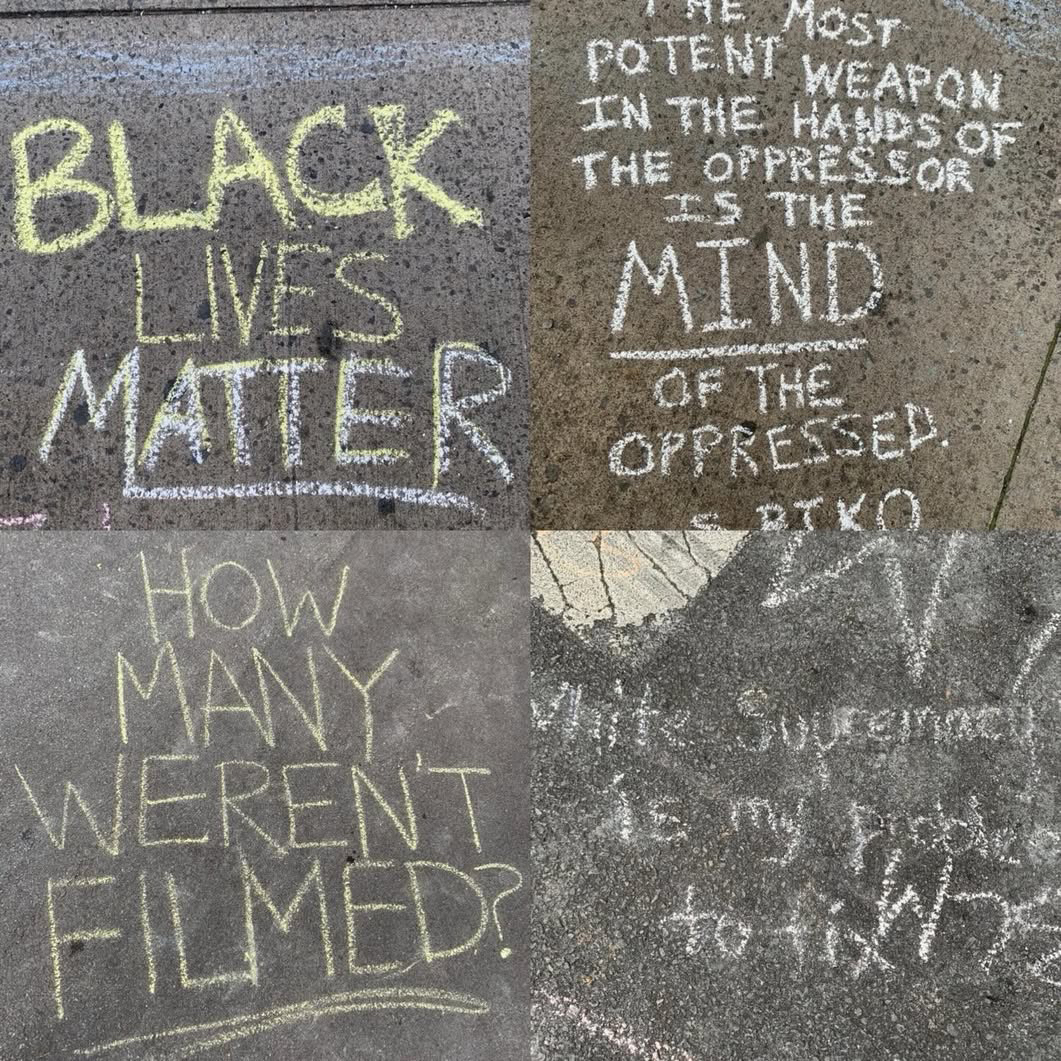 BLACK
LIVES
MATTER
THE MOST
POTENT WEAPON
IN THE HANDS OF
THE OPPRESSOR
IS THE
MIND
OF THE
OPPRESSED.
S. BIKO
HOW
MANY
WEREN'T
FILMED?
White Supremacy
is my
to fix